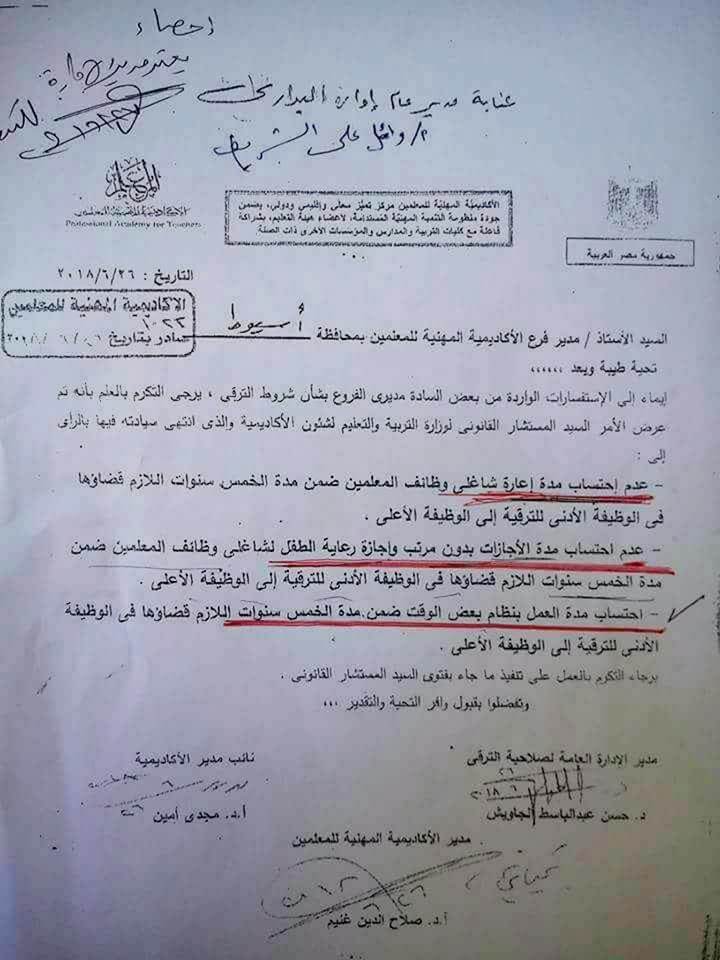 احصاء
يعتمد مدير الإدارة
عناية مدير عام إدارة البدارى
أ/ وائل على الشريف
Professional Academy for Teachers
الأكاديمية المهنية للمعلمين مركز تميز محلى وإقليمى ودولى، يضمن
جودة منظومة التنمية المهنية المستدامة، لأعضاء هيئة التعليم، بشراكة
فاعلة مع كليات التربية والمدارس والمؤسسات الأخرى ذات الصلة
جمهورية مصر العربية
التاريخ : ٢٠١٨/٦/٢٦
الاكاديمية المهنية للمعلمين
١٠٢٢
صادر بتاريخ ٢٦ / ٦ /
السيد الأستاذ / مدير فرع الأكاديمية المهنية للمعلمين بمحافظة أسيوط
تحية طيبة وبعد ،،،،،،
إيماء إلى الإستفسارات الواردة من بعض السادة مديرى الفروع بشأن شروط الترقى ، يرجى التكرم بالعلم بأنه تم
عرض الأمر السيد المستشار القانونى لوزارة التربية والتعليم لشئون الأكاديمية والذى انتهى سيادته فيها بالراى
إلى :
- عدم إحتساب مدة إعارة شاغلى وظائف المعلمين ضمن مدة الخمس سنوات اللازم قضاؤها
فى الوظيفة الأدنى للترقية إلى الوظيفة الأعلى .
- عدم احتساب مدة الأجازات بدون مرتب وإجازة رعاية الطفل لشاغلى وظائف المعلمين ضمن
مدة الخمس سنوات اللازم قضاؤها فى الوظيفة الأدنى للترقية إلى الوظيفة الأعلى .
- احتساب مدة العمل بنظام بعض الوقت ضمن مدة الخمس سنوات اللازم قضاؤها فى الوظيفة
الأدنى للترقية إلى الوظيفة الأعلى .
برجاء التكرم بالعمل على تنفيذ ما جاء بفتوى السيد المستشار القانونى .
وتفضلوا بقبول وافر التحية والتقدير ،،،
مدير الإدارة العامة لصلاحية الترقى
نائب مدير الأكاديمية
د. حسن عبدالباسط الجاويش
أ.د. مجدى أمين
مدير الأكاديمية المهنية للمعلمين
أ.د. صلاح الدين غنيم